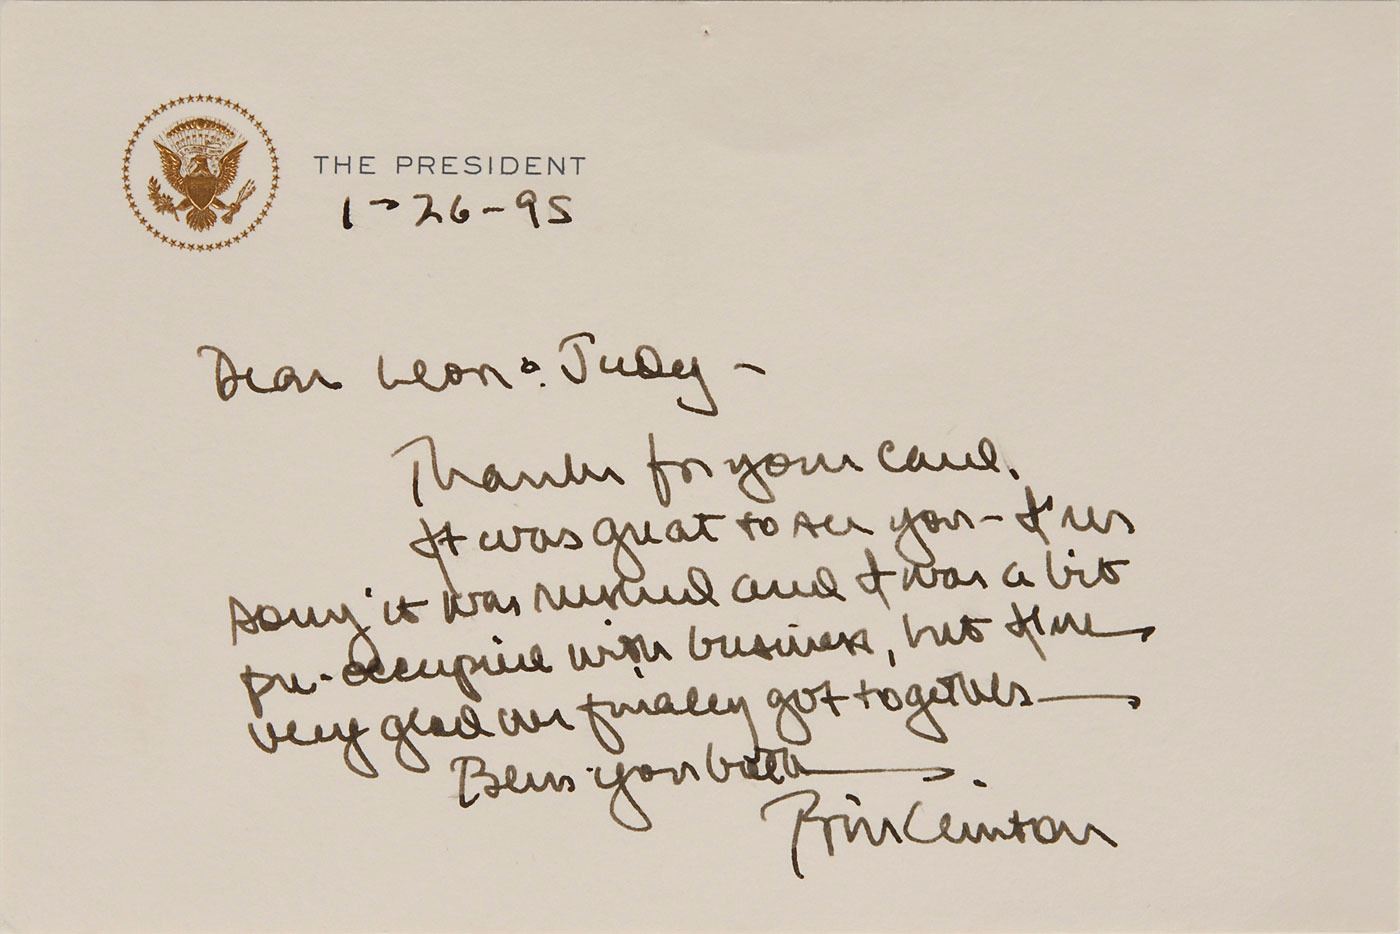 THE PRESIDENT
1-26-95
Dear Leon & Judy -
Thanks for your card.
It was great to see you - I'm
sorry it was rushed and I was a bit
pre-occupied with business, but I'm
very glad we finally got together
Bless you both
Bill Clinton